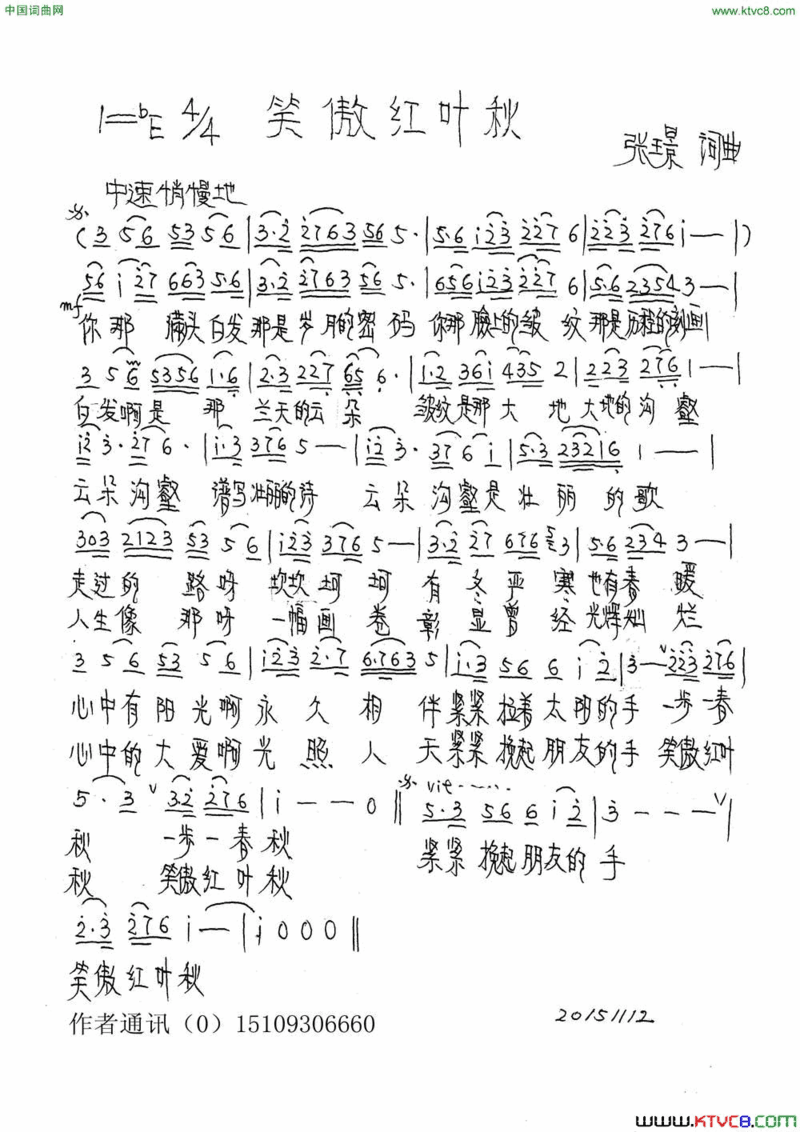 中国词曲网
www.ktvc8.com
1=bE 4/4 笑傲红叶秋
张璟 词曲
中速稍慢地
(3 56 53 56|3·2 2763 56 5·|5·6 i23 227 6|223 276 i——|)
56 i 27 663 5·6|3·2 2763 56 5·|656 i23 227 6|5·6 2354 3——|
mf
你那 满头白发那是岁月的密码 你那脸上的皱纹那是历程的刻画
3 56 5356 1·6|2·3 227 65 6·|1·2 36i 435 2|223 276 1——|
白发啊是 那 兰天的云朵 皱纹是那大 地大地的沟壑
i2 3·276·|i·3 376 5——|i2 3·376 i|5·3 23216 1——|
云朵沟壑 谱写壮丽的诗 云朵沟壑是壮丽的歌
303 2123 53 56|i23 376 5——|3·2 227 676 3|5·6 234 3——|
走过的 路呀坎坎坷坷有冬严寒也有春暖
人生像 那呀一幅画卷彰显曾经光辉灿烂
3 56 53 56|i23 2·7 6·763 5|i·3 56 6 i2|3—223 276|
心中有阳光啊永久相伴紧紧拉着太阳的手一步一春
心中的大爱啊光照人天紧紧挽起朋友的手笑傲红叶
5·3 v 32 276|i———0‖ vit······ 5·3 56 6 i2|3———v|
秋 一步一春秋
紧紧挽起朋友的手
秋 笑傲红叶秋
2·3 276 i—|i 000‖
笑傲红叶秋
作者通讯（0）15109306660
20151112
www.KTVC8.com